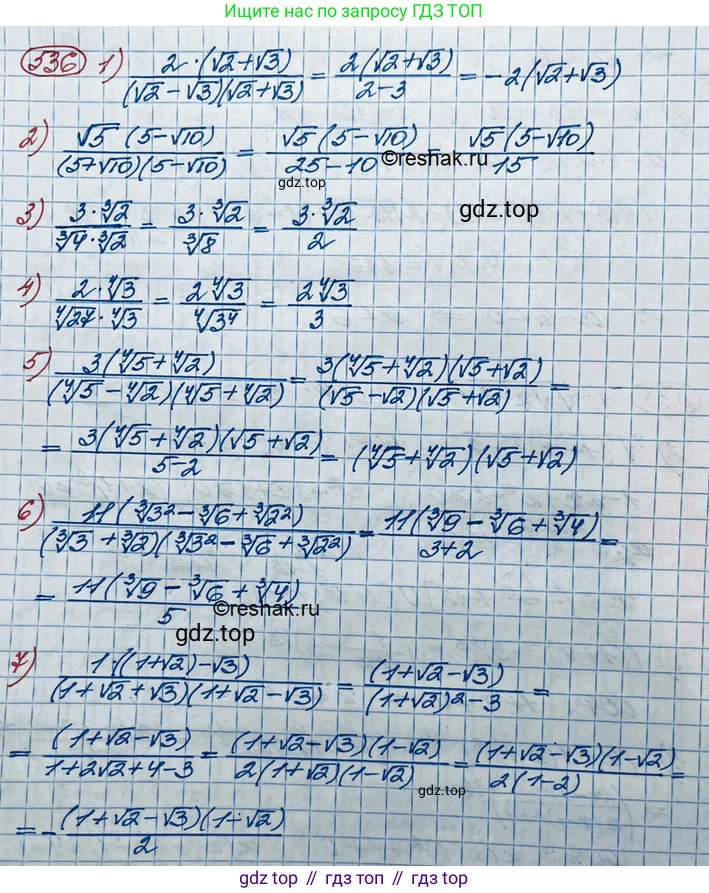 Ищите нас по запросу ГДЗ ТОП
536 1) 2·(√2+√3)/((√2-√3)(√2+√3)) = 2(√2+√3)/(2-3) = -2(√2+√3)
2) √5(5-√10)/((5+√10)(5-√10)) = √5(5-√10)/(25-10) = √5(5-√10)/15
©reshak.ru
gdz.top
gdz.top
3) 3·∛2/(∛4·∛2) = 3·∛2/∛8 = 3·∛2/2
4) 2·∜3/(∜27·∜3) = 2∜3/∜3⁴ = 2∜3/3
5) 3(∜5+∜2)/((∜5-∜2)(∜5+∜2)) = 3(∜5+∜2)(√5+√2)/((√5-√2)(√5+√2)) =
= 3(∜5+∜2)(√5+√2)/(5-2) = (∜5+∜2)(√5+√2)
6) 11(∛3²-∛6+∛2²)/((∛3+∛2)(∛3²-∛6+∛2²)) = 11(∛9-∛6+∛4)/(3+2) =
= 11(∛9-∛6+∛4)/5
©reshak.ru
gdz.top
7) 1·((1+√2)-√3)/((1+√2+√3)(1+√2-√3)) = (1+√2-√3)/((1+√2)²-3) =
= (1+√2-√3)/(1+2√2+4-3) = (1+√2-√3)(1-√2)/(2(1+√2)(1-√2)) = (1+√2-√3)(1-√2)/(2(1-2)) =
gdz.top
= -(1+√2-√3)(1-√2)/2
gdz top // гдз топ // gdz.top